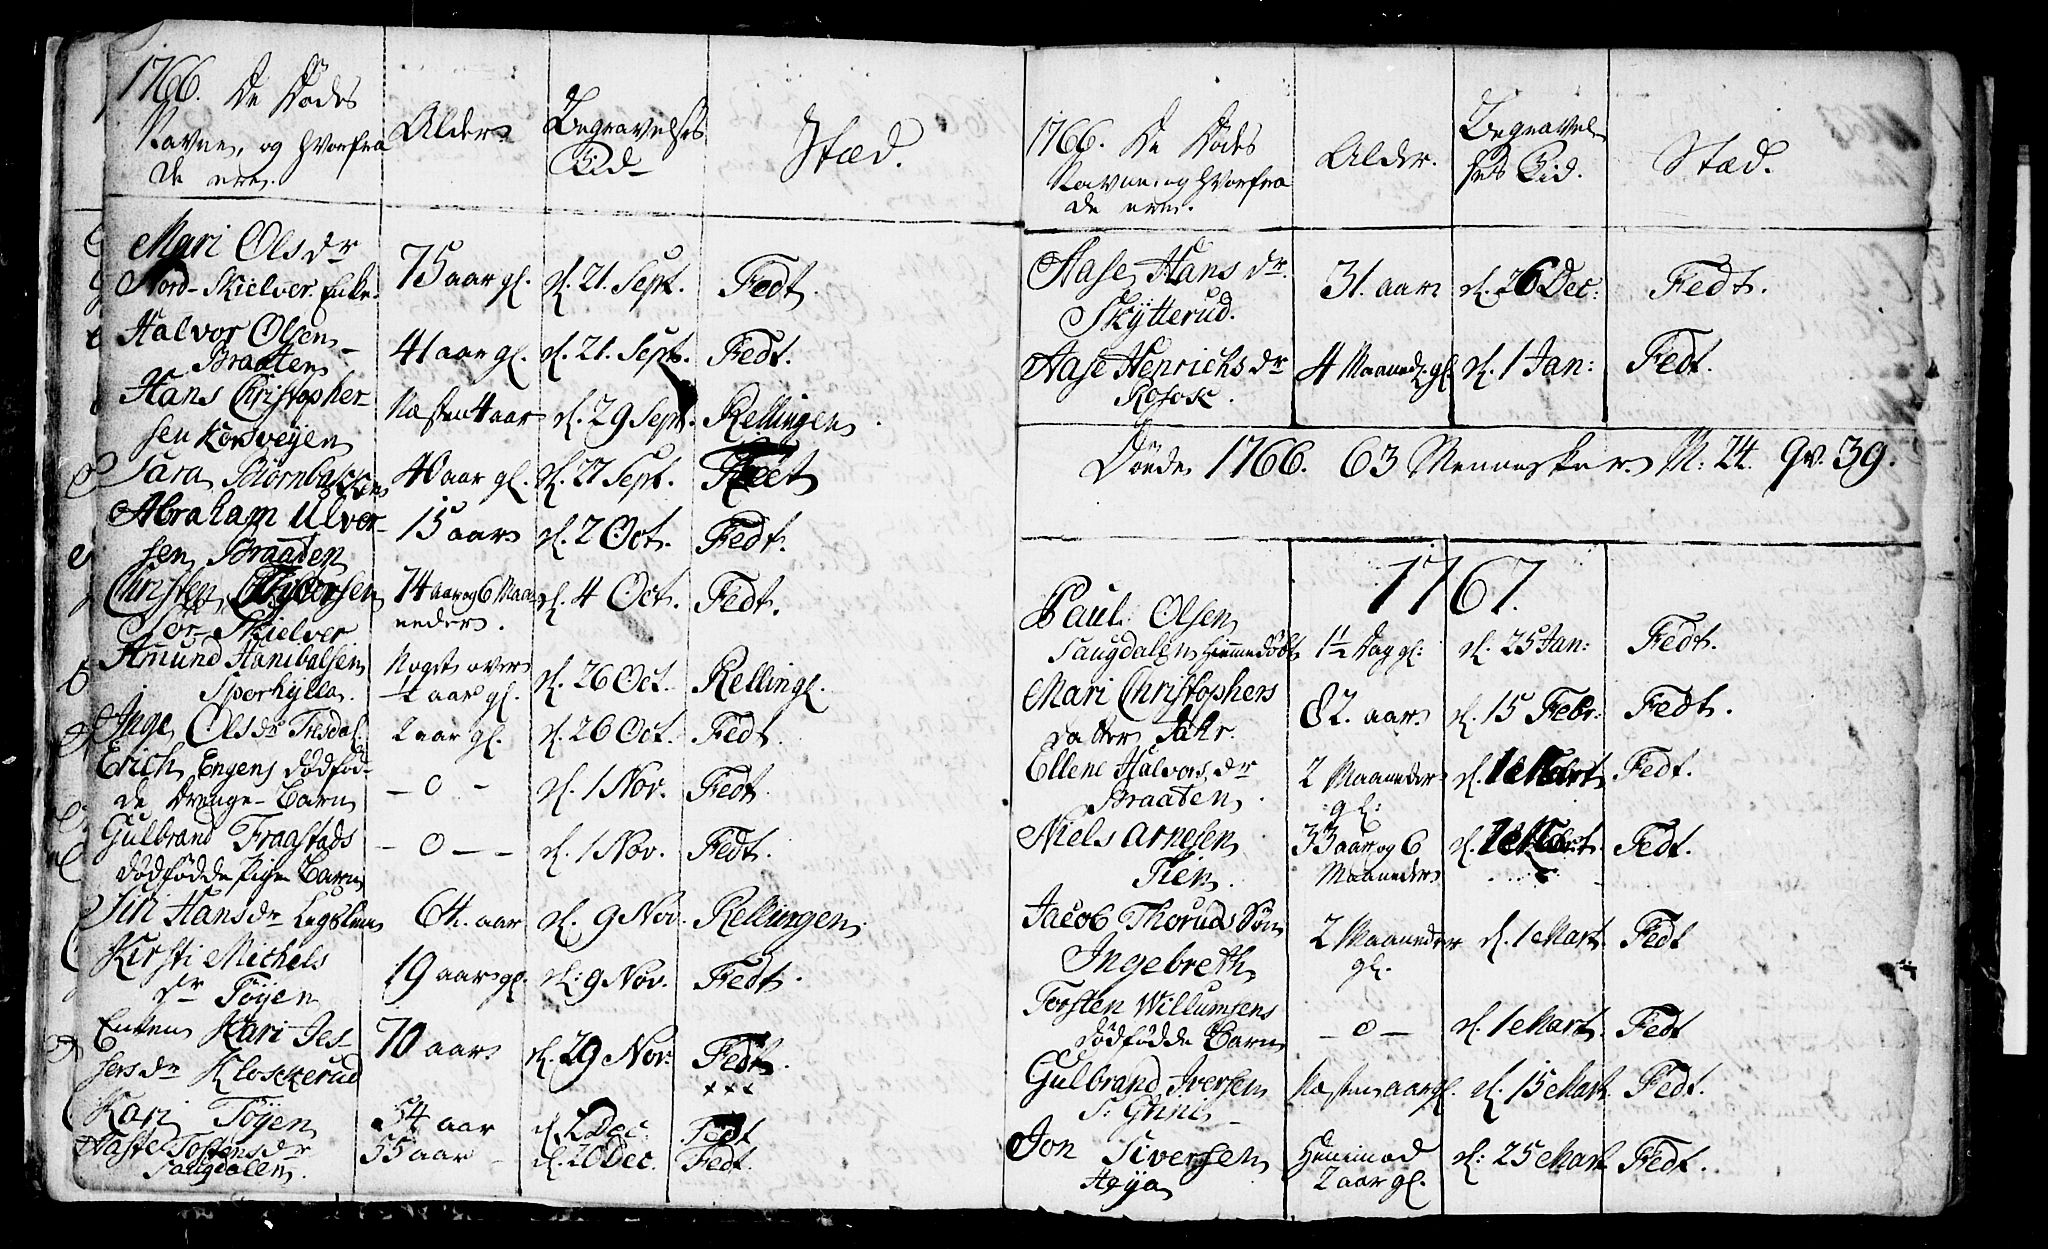 1766. De Dødes
Navne, og hvorfra
de ere.
Alder.
Begravelses
Tid
Stæd.
Mari Olsdr
Nord-Skielver Enke.
75 aar gl.
d. 21. Sept.
Fedt.
Halvor Olsen
Braaten
41 aar gl.
d. 21. Sept.
Fedt.
Hans Christopher
sen Korsveyen
Næsten 4 aar
d. 29 Sept.
Rellingen
Sara Biørnbakken
40 aar gl.
d. 27 Sept.
Fedt
Abraham Ulver
sen Braaten
15 aar
d. 2 Oct.
Fedt.
Christen
Sør-Skielver
74 aar og 6 Maa
neder.
d. 4 Oct.
Fedt.
Amund Hanibalsen
Sporhylla.
Noget over
aar gl.
d. 26 Oct.
Relling.
Inge Olsdr
2 aar gl.
d. 26 Oct.
Fedt.
Erich Engens dødfød-
de drenge-Barn
- 0 -
d. 1 Nov.
Fedt.
Gulbrand Fraastads
dødfødde Pige Barn
- 0 - -
d. 1 Nov.
Fedt.
Siri Hansdr
64. aar
d. 9 Nov.
Rellingen.
Kirsti Michels
dr Töyen
19 aar gl.
d. 9 Nov.
Fedt.
Enken Kari Jes-
sersdr Klockerud
70 aar
d. 29 Nov.
Fedt.
xxx
Kari Töyen
54 aar
d. 2 Dec.
Fedt
Aaste Tostensdr
Saugdalen.
55 aar
d. 20 Dec.
Fedt.
1766. De Dødes
Navne, og hvorfra
de ere.
Alder.
Begravel
ses Tid.
Stæd.
Aase Hansdr.
Skÿtterud.
31. aar
d. 26 Dec:
Fedt.
Aase Henrichsdr
4 Maaneder gl.
d. 1 Jan:
Fedt.
Døde 1766. 63 Mennesker. M: 24. Qv. 39.
1767.
Paul Olsen
Saugdalen Hiemmedøbt
1½ Dag gl:
d. 25 Jan:
Fedt.
Mari Christophers
datter Fahr.
82. aar
d. 15 Febr:
Fedt.
Ellene Halvorsdr
Braaten.
2 Maaneder
gl:
d. 1 Mart.
Fedt.
Niels Arnesen
Tien.
33 aar og 6
Maaneder
d. 1 Mart.
Fedt.
Jacob Thoruds Søn
Ingebreth
2 Maaneder
gl.
d. 1 Mart.
Fedt
Torsten Willumsens
dødfødde Barn
- 0 -
d. 1 Mart.
Fedt
Gulbrand Iversen
Næsten aar gl.
d. 15 Mart.
Fedt.
Jon Siversen
Høya
Henimod
2 aar gl.
d: 25 Mart.
Fedt.